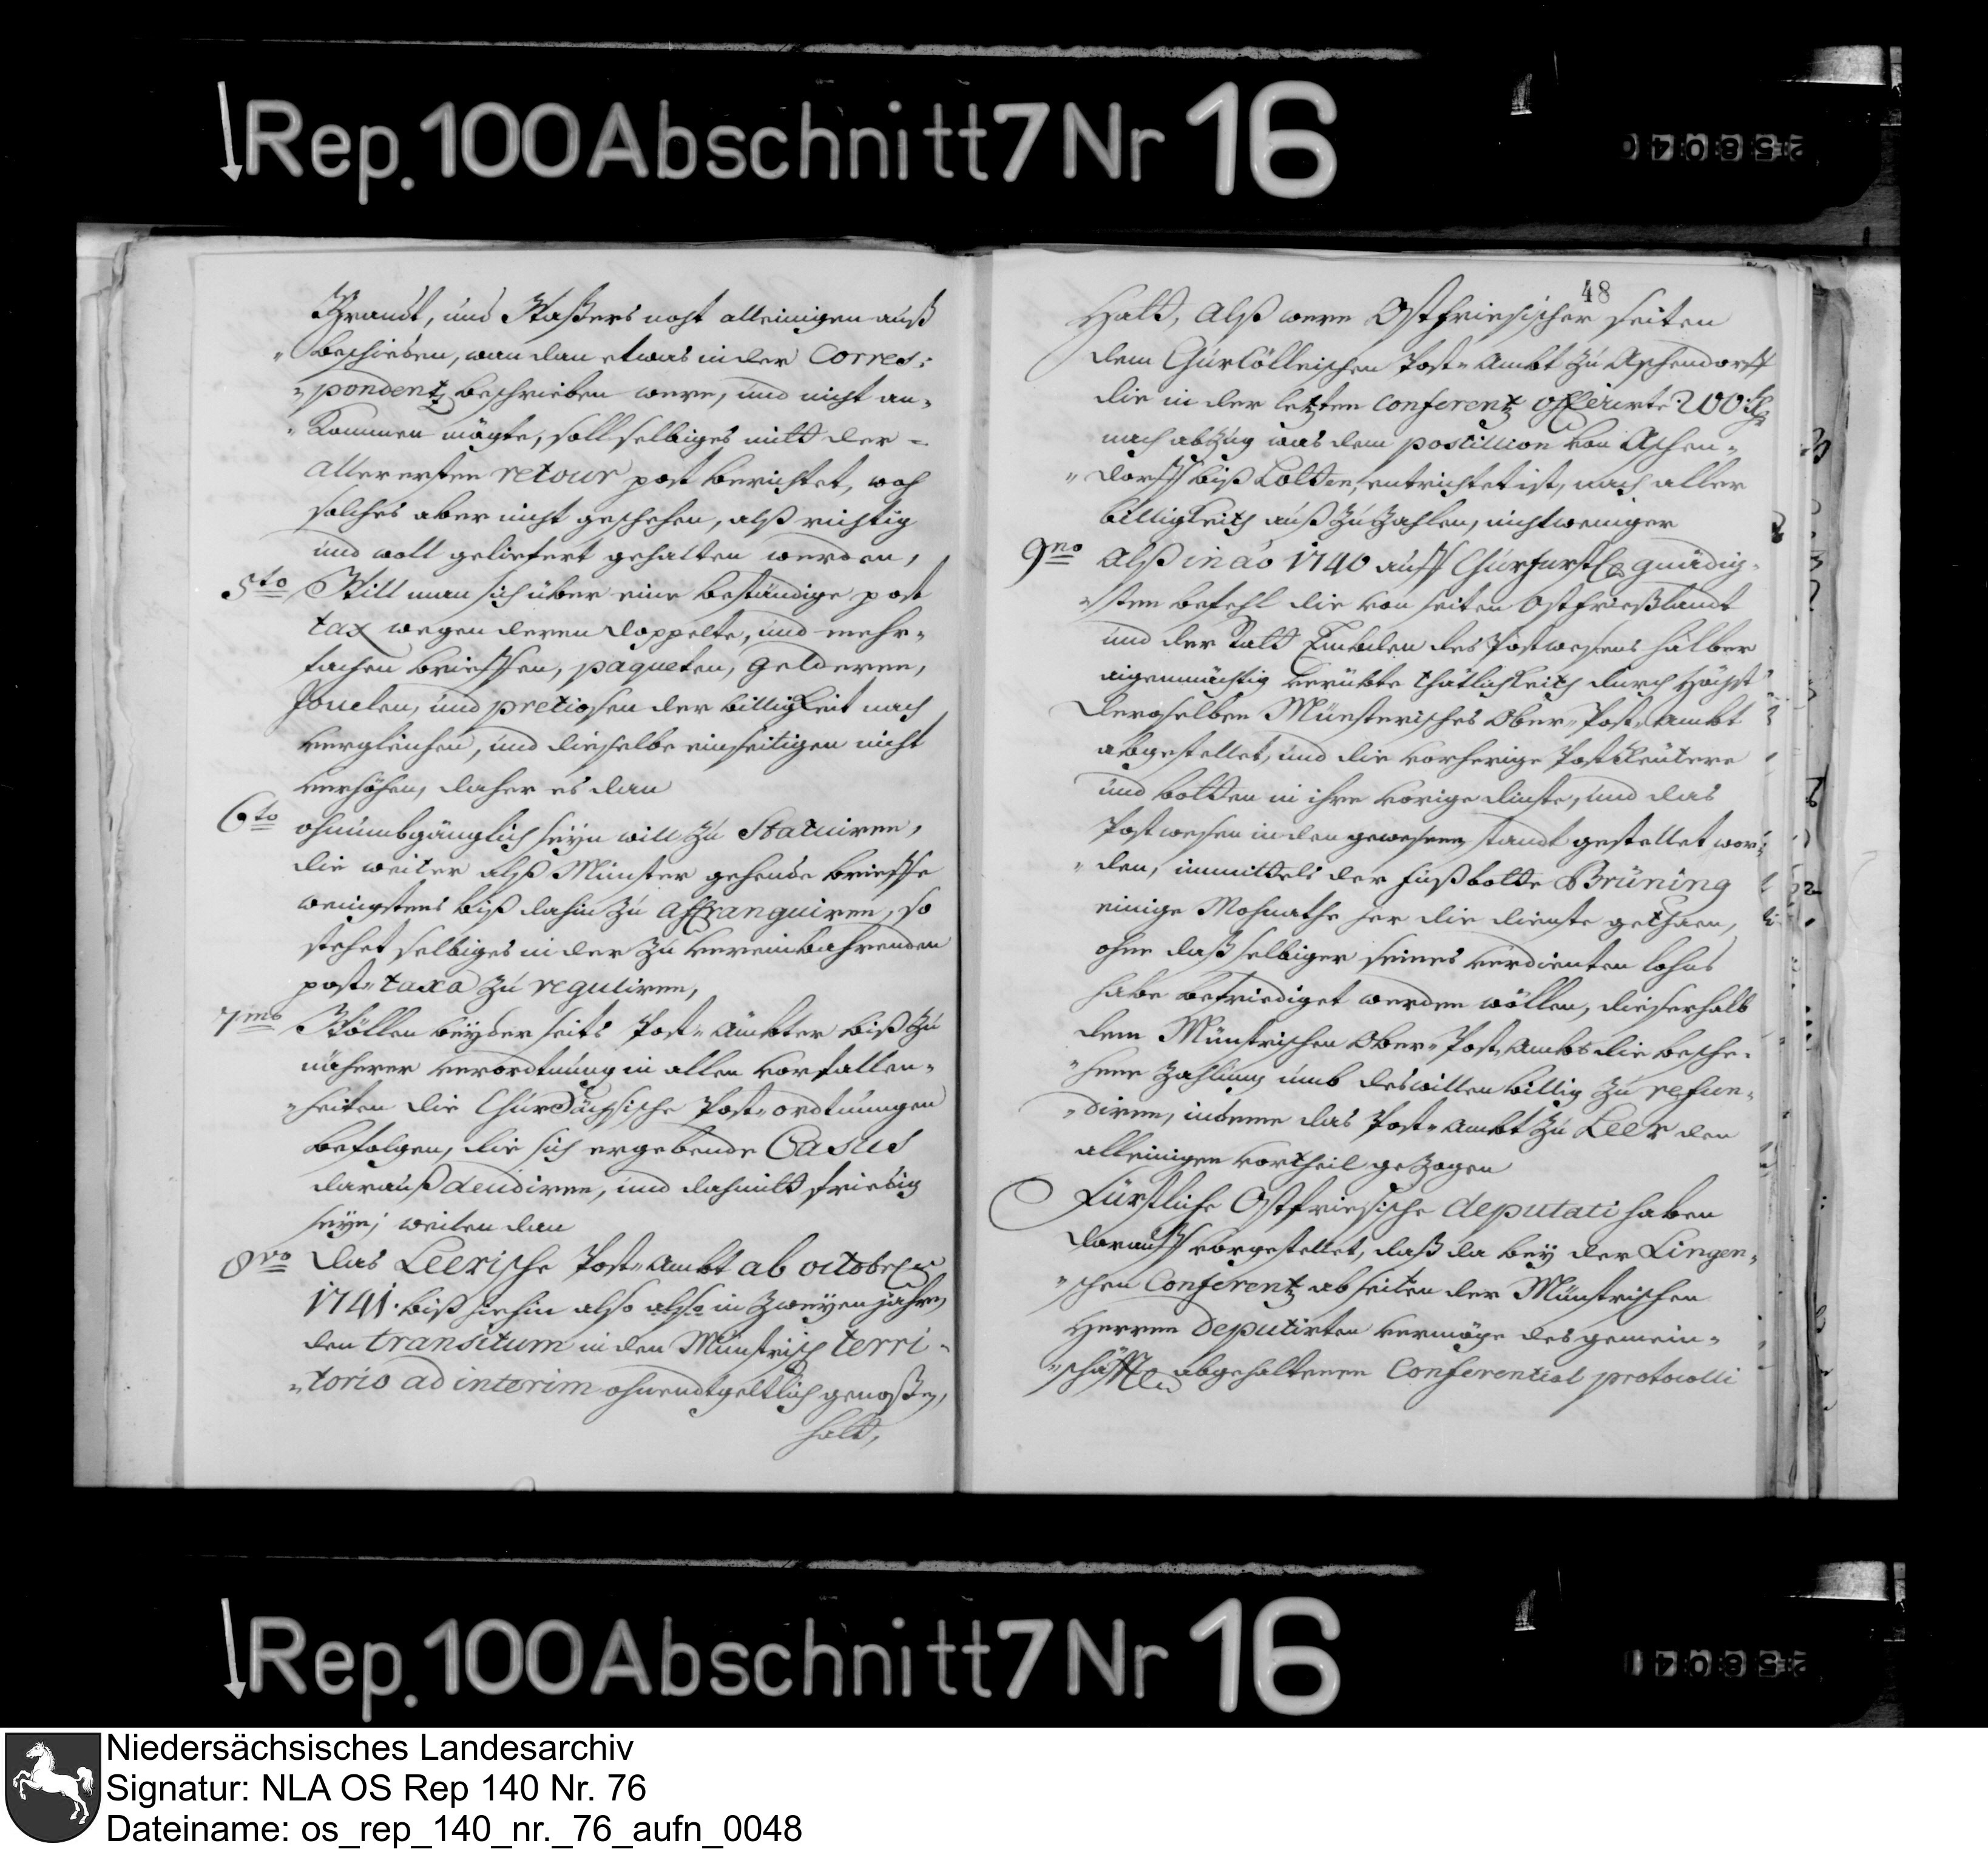 Rep. 100 Abschnitt 7 Nr 16
Brandt, und Waßers noht alleinigen auß
„beschieden, wan dan etwas in der Corres:
„pondentz beschrieben were, und nicht an„
„kommen mögte, soll selbiges mitt der
allerersten retour post berichtet, woh
solches aber nicht geschehen, alß richtig
und woll geliefert gehalten werden,
5to Will man sich über eine beständige post
tax wegen deren doppelte, und mehr„
fachen brieffen, paqueten, Gelderen,
Jouelen, und pretiosen der billigkeit nach
vergleichen, und dieselbe einseitigen nicht
verhöhen, daher es dan
6to ohnumbgänglich seyn will zu Statuiren,
die weiter alß Münster gehende brieffe
wenigstens biß dahin zu affranquiren, so
stehet selbiges in der zu vereinbahrenden
post„taxa zu reguliren,
7mo Wöllen beyderseits Post„Ambter biß zu
näherer verordtnung in allen vorfallen„
„heiten die ChurSächsische Post„ordtnungen
befolgen, die sich ergebende Casus
darauß decidiren, und dahmitt friedig
seyn; weilen dan
8vo das Leerische Post„Ambt ab octobris
1741. biß hiehin also in zweyen jahren
den transitum in den Münstrisch terri„
„torio ad interim ohnendtgeltlich genoßen,
hatt,
48
Hatt, Alß were Ostfriesischer seiten
dem ChurCöllnischen Post„Ambt zu Aschendorff
die in der letzten conferentz offerirte 200 rh
nach abzug was dem postillion von Aschen„
„dorff biß Loltten, entrichtet ist, nach aller
billigkeith auß zu zahlen, nicht weniger
9no Alß in ao 1740 auff Churfurstl. gnädig„
„sten befehl die von seiten Ostfrießlandt
und der Statt Embden des Postwesens halber
aigenmächtig verübte thätlichkeith durch Höchst
Deroselben Münsterisches Ober„Post„Ambt
abgestellet, und die vorherige Postreutere
und botten in ihre vorige dinste, und das
Postwesen in den gewesenen standt gestellet wor„
„den, inmittels der fußbotte Brüning
einige Mohnathe her die dienste gethaen,
ohne daß selbiger seines verdienten lohns
habe befriediget werden wöllen, dieserhalb
dem Münstrischen Ober„Post„Ambt die besche„
„hene Zahlung umb deswillen billig zu refun„
„diren, indeme das Post„Ambt zu Leer den
alleinigen vortheil gezogen
Fürstliche Ostfriesische deputati haben
darauff vorgestellet, daß da bey der Lingen„
„schen Conferentz ab seiten der Münstrischen
Herren Deputirten vermöge des gemein„
„schäfftl. abgehaltenen Conferential protocolli
Rep. 100 Abschnitt 7 Nr 16
Niedersächsisches Landesarchiv
Signatur: NLA OS Rep 140 Nr. 76
Dateiname: os_rep_140_nr._76_aufn_0048